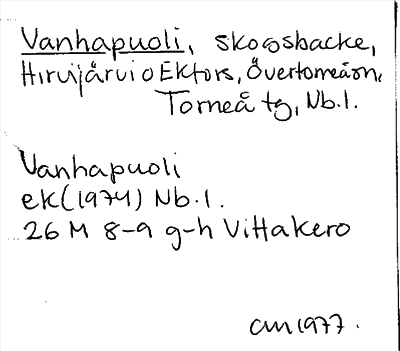 Vanhapuoli, skogsbacke,
Hirvijärvi o Ektors, Övertorneå sn,
Torneå tg, Nb. l.
Vanhapuoli
ek (1974) Nb. l.
26 M 8-9 g-h Vittakero
CM 1977.